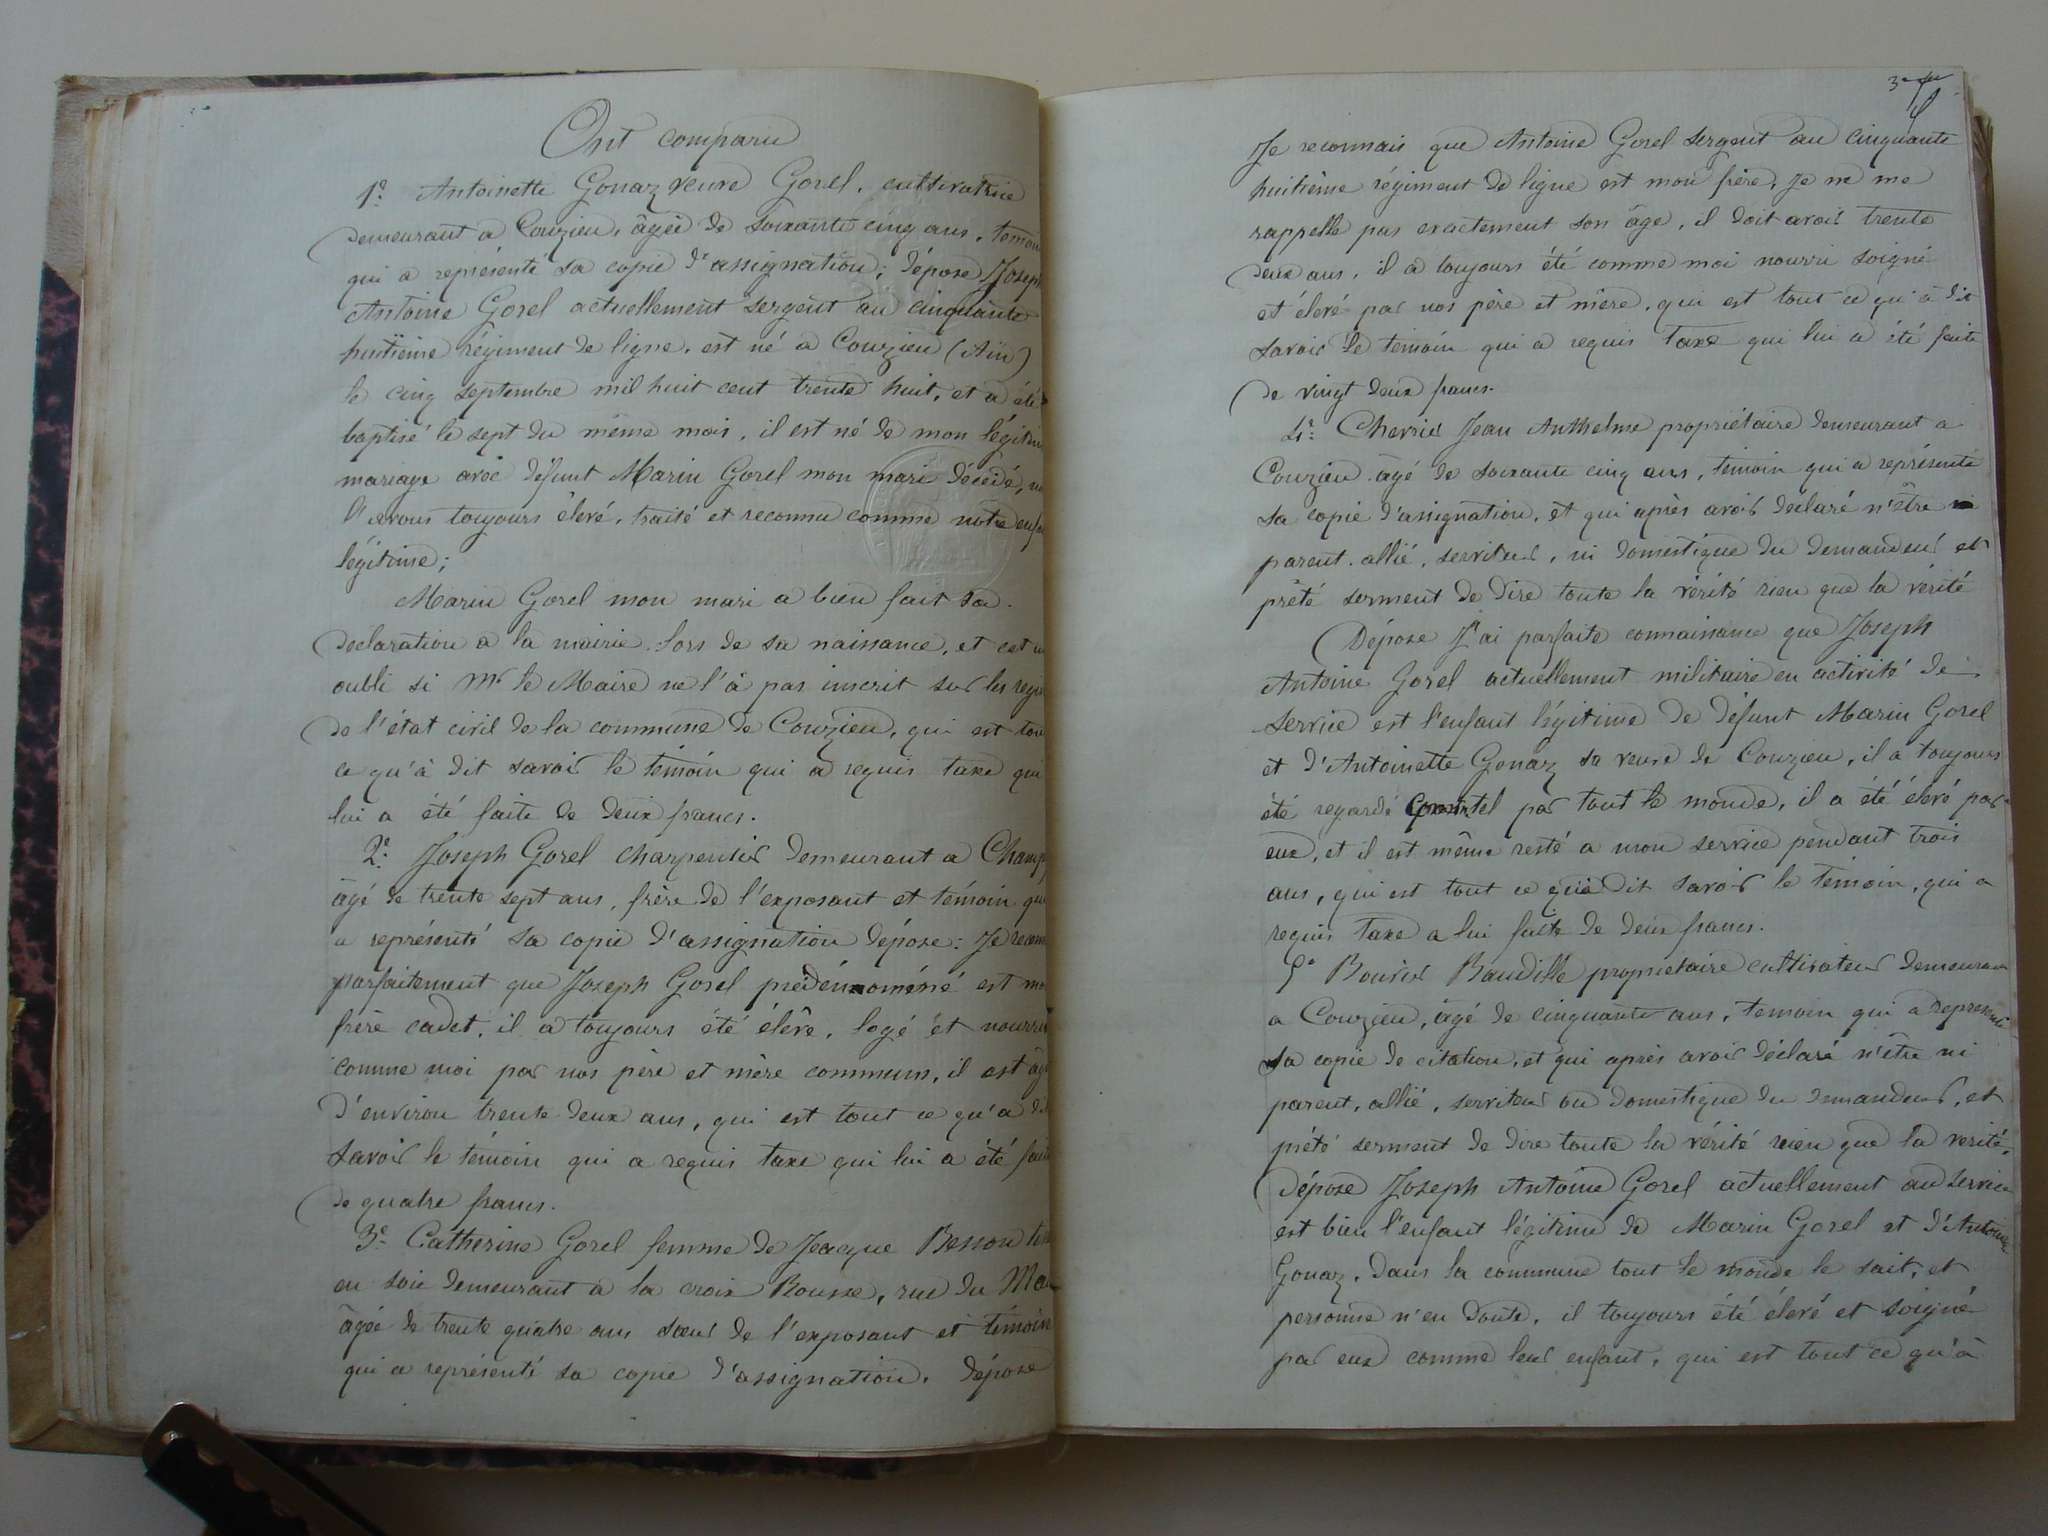 Ont comparu
1º Antoinette Gonaz veuve Gorel, cultivatrice
demeurant a Couzieu, âgée de soixante cinq ans, temoin
qui a représenté sa copie d'assignation; dépose Joseph
Antoine Gorel actuellement sergent au cinquante
huitième régiment de ligne, est né a Couzieu (Ain)
le cinq septembre mil huit cent trente huit, et a été
baptisé le sept du même mois, il est né de mon légitime
mariage avec défunt Marin Gorel mon mari décédé,
l'avons toujours élevé, traité et reconnu comme notre enfant
légitime;
Marin Gorel mon mari a bien fait sa
déclaration a la mairie lors de sa naissance, et c'est un
oubli si Mr le Maire ne l'à pas inscrit sur les
de l'état civil de la commune de Couzieu, qui est tout
ce qu'à dit savoir le témoin qui a requis taxe qui
lui a été faite de deux francs.
2º Joseph Gorel charpentier demeurant a
âgé de trente sept ans, frère de l'exposant et témoin qui
a représenté sa copie d'assignation dépose: Je
parfaitement que Joseph Gorel prédénommé est mon
frère cadet, il a toujours été élevé, logé et nourri
comme moi par nos père et mère communs, il est âgé
d'environ trente deux ans, qui est tout ce qu'a dit
savoir le témoin qui a requis taxe qui lui a été faite
de quatre francs.
3º Catherine Gorel femme de Jeacque Besson
en soie demeurant a la croix Rousse, rue du
âgée de trente quatre ans sœur de l'exposant et témoin
qui a représenté sa copie d'assignation. dépose
3e
Je reconnais que Antoine Gorel sergent au cinquante
huitième régiment de ligne est mon frère, je ne me
rappelle pas exactement son âge, il doit avoir trente
deux ans, il a toujours été comme moi nourri soigné
et élevé par nos père et mère, qui est tout ce qu'à dit
savoir le témoin qui a requis taxe qui lui a été faite
de vingt deux francs.
4º Chevrier Jean Anthelme propriétaire demeurant a
Couzieu âgé de soixante cinq ans, témoin qui a représenté
sa copie d'assignation, et qui après avoir déclaré n'être ni
parent, allié, serviteur, ni domestique du demandeur et
prêté serment de dire toute la vérité rien que la vérité
Dépose J'ai parfaite connaissance que Joseph
Antoine Gorel actuellement militaire en activité de
service est l'enfant légitime de défunt Marin Gorel
et d'Antoinette Gonaz sa veuve de Couzieu, il a toujours
été regardé comme tel par tout le monde, il a été élevé par
eux, et il est même resté a mon service pendant trois
ans, qui est tout ce qu'à dit savoir le témoin, qui a
requis taxe a lui faite de deux francs.
5º Bouvier Baudille propriétaire cultivateur demeurant
a Couzieu, âgé de cinquante ans, temoin qui a représenté
sa copie de citation, et qui après avoir déclaré n'être ni
parent, allié, serviteur ou domestique du demandeur, et
prêté serment de dire toute la vérité rien que la verité,
dépose Joseph Antoine Gorel actuellement au service
est bien l'enfant légitime de Marin Gorel et d'Antoinette
Gonaz. Dans la commune tout le monde le sait, et
personne n'en doute, il toujours été élevé et soigné
par eux comme leur enfant, qui est tout ce qu'à